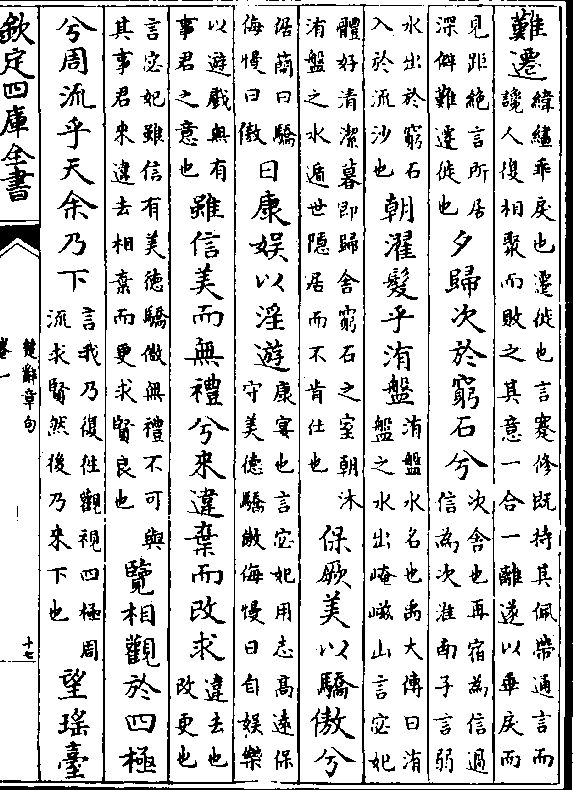 難遷緯繣乖戾也遷徙也言蹇修既持其佩帶通言而
讒人復相聚而敗之其意一合一離遂以乖戾而
見距絶言所居
深僻難遷徙也
夕歸次於窮石兮次舍也再宿為信過
信為次淮南子言弱
水出於窮石
入於流沙也
朝濯髮乎洧盤洧盤水名也禹大傳曰洧
盤之水出崦嵫山言宓妃
體好清潔暮即歸舍窮石之室朝沐
洧盤之水遁世隱居而不肯仕也
保厥美以驕傲兮
倨簡曰驕
侮慢曰傲
日康娛以淫遊康宴也言宓妃用志高遠保
守美德驕傲侮慢日自娛樂
以遊戲無有
事君之意也
雖信美而無禮兮來違棄而改求違去也
改更也
言宓妃雖信有美德驕傲無禮不可與
其事君來違去相棄而更求賢良也
覽相觀於四極
兮周流乎天余乃下言我乃復往觀視四極周
流求賢然後乃來下也
望瑤臺
欽定四庫全書
楚辭章句
卷一
十七